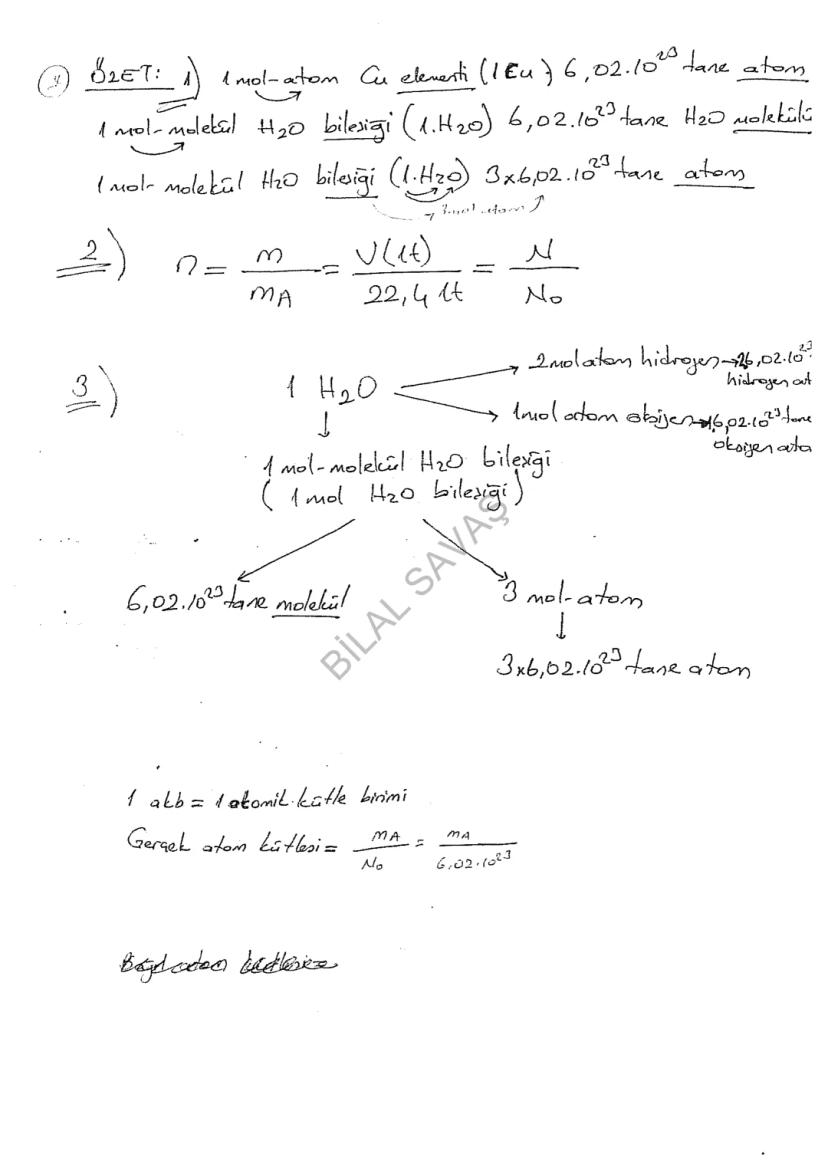 ÖZET: 1) 1 mol-atom Cu elementi (1Cu) 6,02.10²³ tane atom
1 mol-molekül H₂O bileşiği (1.H₂O) 6,02.10²³ tane H₂O molekülü
1 mol-molekül H₂O bileşiği (1.H₂O) 3x6,02.10²³ tane atom
3 mol atom
2) n = m/mA = V(lt)/22,4 lt = N/N₀
3) 1 H₂O
→ 2 mol atom hidrojen → 2.6,02.10²³
hidrojen at
→ 1 mol atom oksijen → 1.6,02.10²³ tane
oksijen ato
↓
1 mol-molekül H₂O bileşiği
(1 mol H₂O bileşiği)
6,02.10²³ tane molekül
3 mol-atom
↓
3x6,02.10²³ tane atom
BİLAL SAVAŞ
1 akb = 1 atomik kütle birimi
Gerçek atom kütlesi = mA/N₀ = mA/6,02.10²³